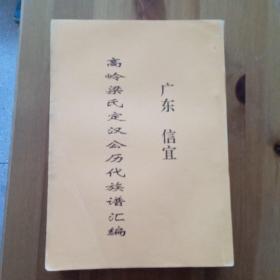 广东 信宜
高岭梁氏定汉公历代族谱汇编